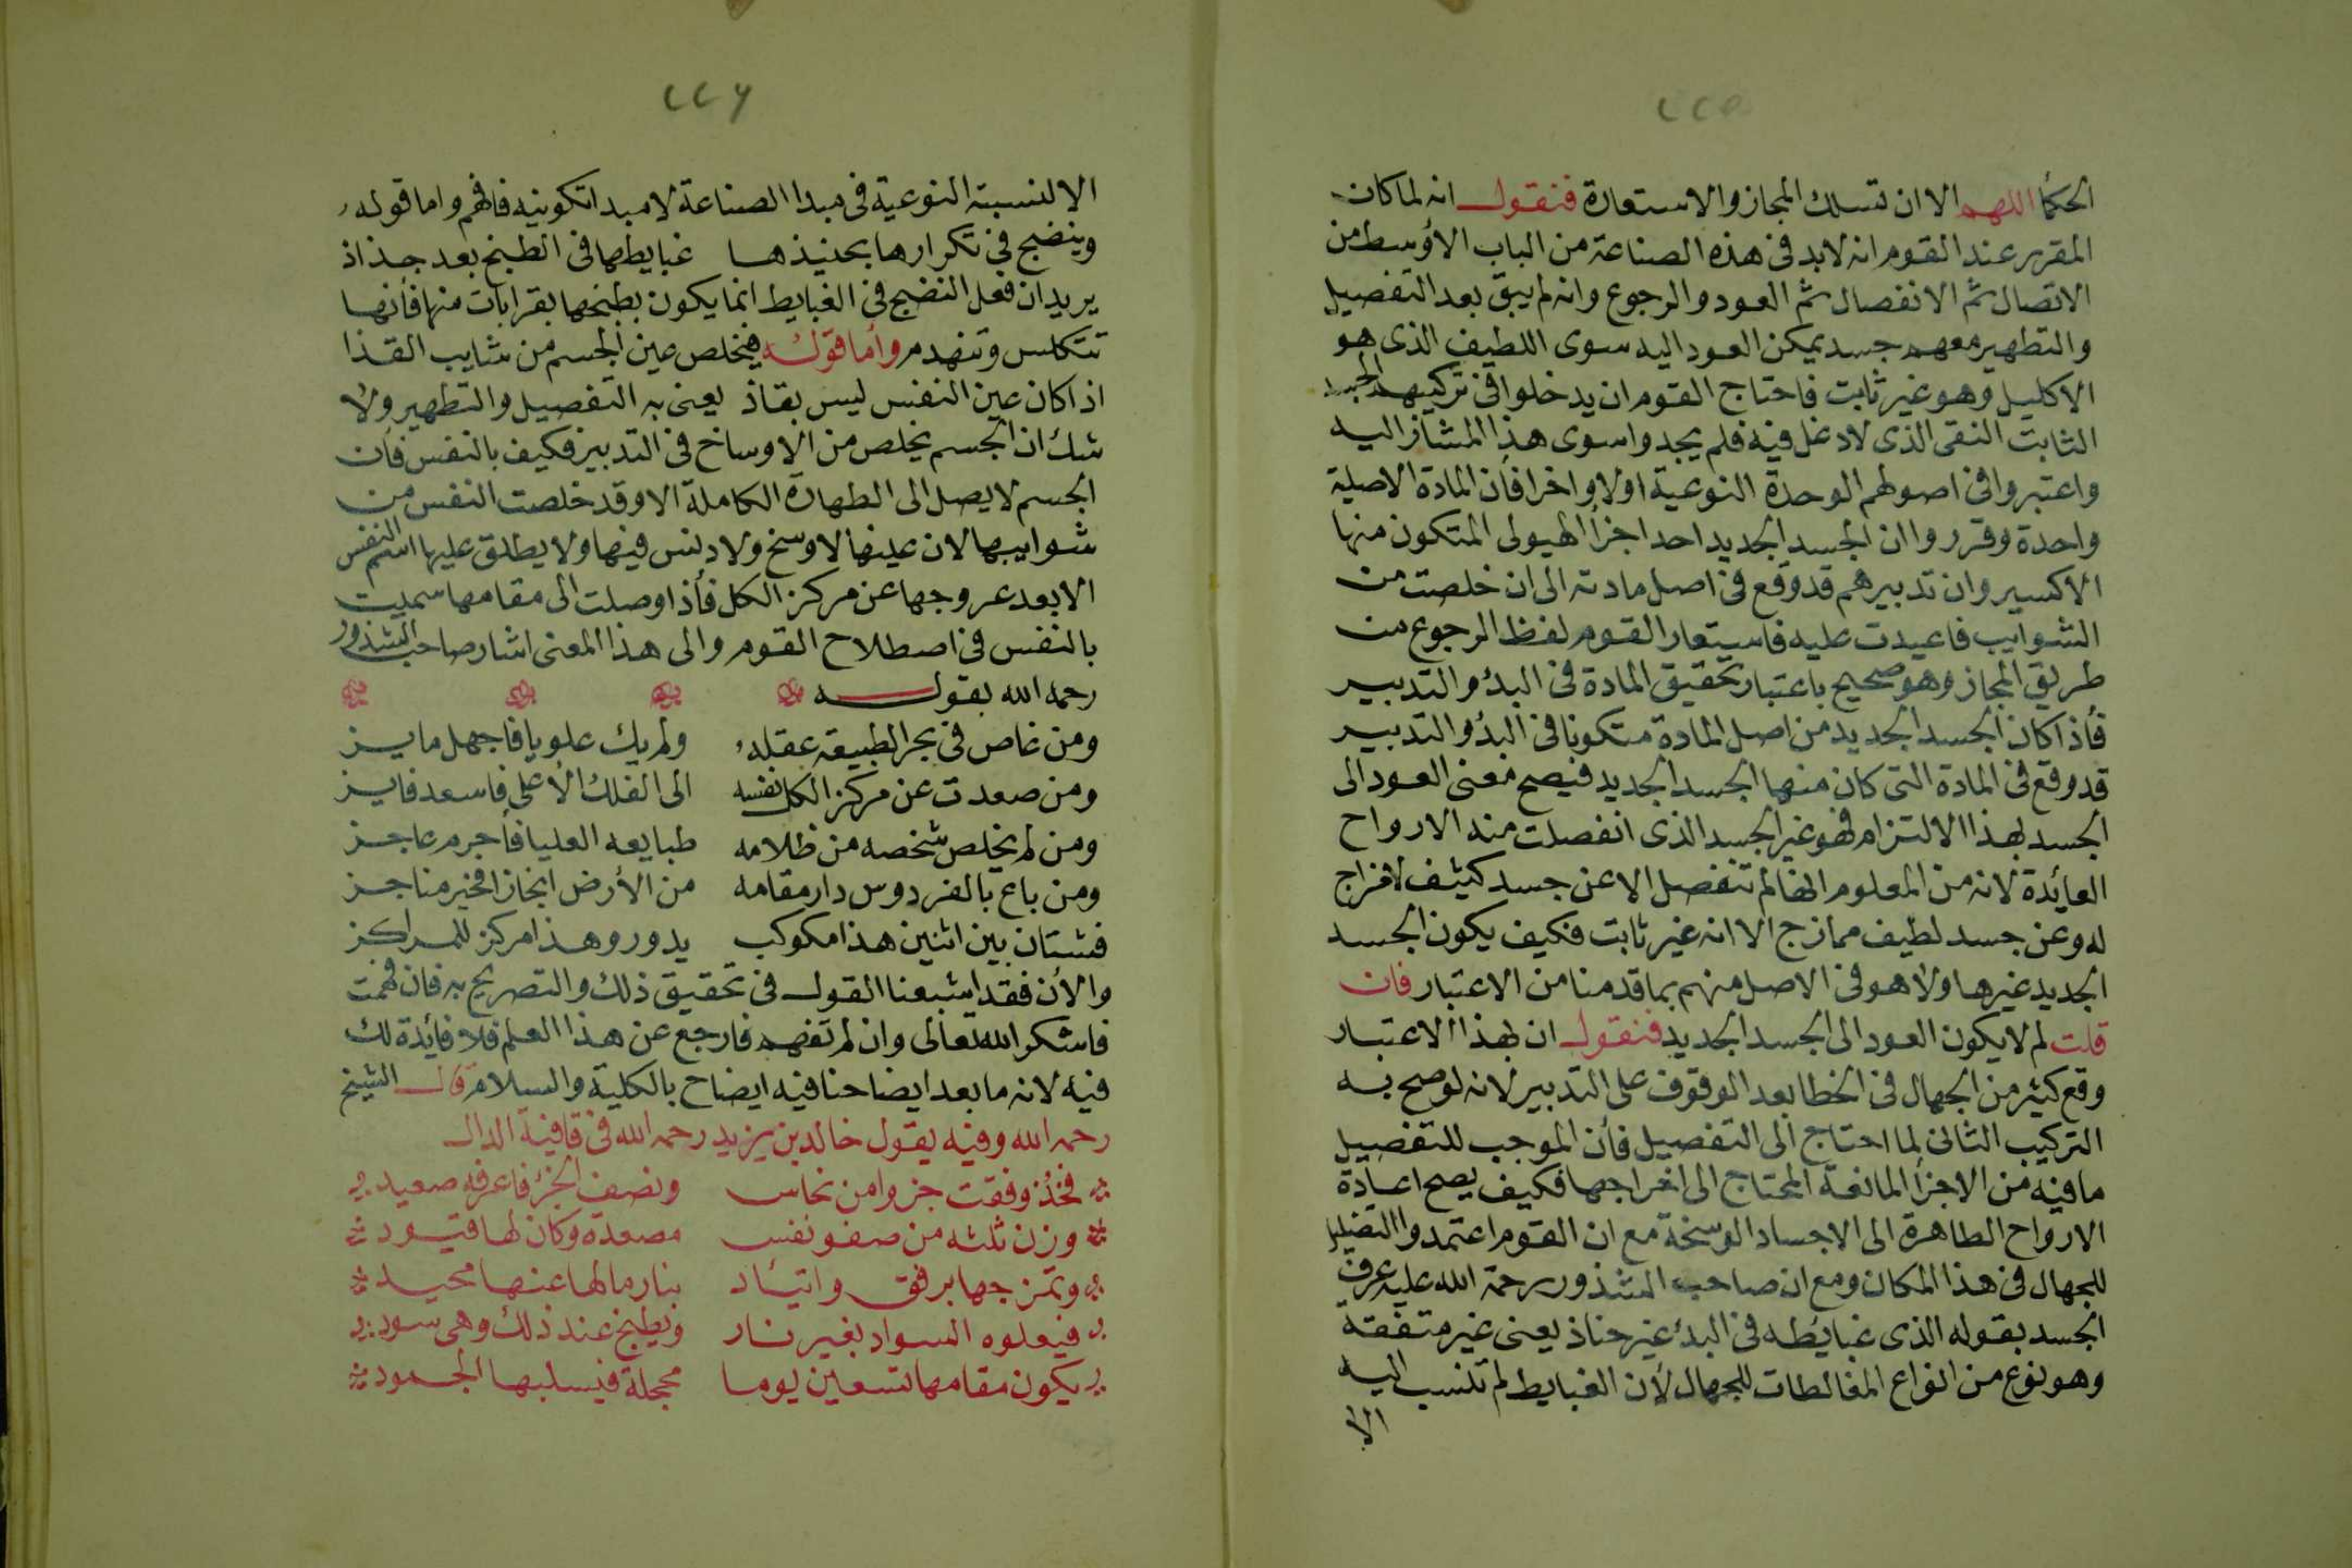 ٢٢٥
الحكما اللهم الا ان تسلك المجاز والاستعارة فنقول انه لما كان
المقرر عند القوم انه لابد فى هذه الصناعة من الباب الاوسط من
الاتصال ثم الانفصال ثم العود والرجوع وانه لم يبق بعد التفصيل
والتطهير معهم جسد يمكن العود اليه سوى اللطيف الذى هو
الاكليل وهو غير ثابت فاحتاج القوم ان يدخلوا فى تركيبهم الجسد
الثابت النقى الذى لا دغل فيه فلم يجدوا سوى هذا المشار اليه
واعتبروا فى اصولهم الوحدة النوعية اولا واخرا فأن المادة الاصلية
واحدة وقرروا ان الجسد الجديد احد اجزأ الهيولى المتكون منها
الاكسير وان تدبيرهم قد وقع فى اصل مادته الى ان خلصت من
الشوايب فاعيدت عليه فاستعار القوم لفظ الرجوع من
طريق المجاز وهو صحيح باعتبار تحقيق المادة فى البدؤ والتدبير
فأذا كان الجسد الجديد من اصل المادة متكونا فى البدؤ والتدبير
قد وقع فى المادة التى كان منها الجسد الجديد فيصح معنى العود الى
الجسد بهذا الالتزام فهو غير الجسد الذى انفصلت منه الارواح
العائدة لانه من المعلوم انها لم تنفصل الا عن جسد كثيف لا مزاج
له وعن جسد لطيف ممازج الا انه غير ثابت فكيف يكون الجسد
الجديد غيرها ولا هو فى الاصل منهم بما قدمنا من الاعتبار فان
قلت لم لا يكون العود الى الجسد الجديد فنقول ان بهذا الاعتبار
وقع كثير من الجهال فى الخطا بعد الوقوف على التدبير لانه لو صح به
التركيب الثانى لما احتاج الى التفصيل فأن الموجب للتفصيل
ما فيه من الاجزأ المانعة المحتاج الى اخراجها فكيف يصح اعادة
الارواح الطاهرة الى الاجساد الوسخة مع ان القوم اعتمدوا التضليل
للجهال فى هذا المكان ومع ان صاحب الشذور رحمة الله عليه عرف
الجسد بقوله الذى غبايطه فى البدؤ غير حناذ يعنى غير متفقة
وهو نوع من انواع المغالطات للجهال لأن الغبايط لم تنسب اليه
الا
٢٢٦
الا لنسبته النوعية فى مبدا الصناعة لا مبدا تكوينيه فافهم واما قوله
وينضج فى تكرارها بحنيذها غبايطها فى الطبخ بعد جذاذ
يريد ان فعل النضج فى الغبايط انما يكون بطبخها بقرابات منها فأنها
تتكلس وتنهدم وأما قوله فيخلص عين الجسم من شايب القذا
اذا كان عين النفس ليس بقاذ يعنى به التفصيل والتطهير ولا
شك ان الجسم يخلص من الاوساخ فى التدبير فكيف بالنفس فأن
الجسم لا يصل الى الطهارة الكاملة الا وقد خلصت النفس من
شوايبها لان عينها لا وسخ ولا دنس فيها ولا يطلق عليها اسم النفس
الا بعد عروجها عن مركز الكل فأذا وصلت الى مقامها سميت
بالنفس فى اصطلاح القوم والى هذا المعنى اشار صاحب الشذور
رحمه الله بقوله
ومن غاص فى بحر الطبيعة عقله ولم يك علويا فأجهل مايز
ومن صعدت عن مركز الكل نفسه الى الفلك الأعلى فاسعد فايز
ومن لم يخلص شخصه من ظلامه طبايعه العليا فأجرم عاجز
ومن باع بالفردوس دار مقامه من الأرض انجازا فخير مناجز
فشتان بين اثنين هذا مكوكب يدور وهذا مركز للمراكز
والأن فقد اشبعنا القول فى تحقيق ذلك والتصريح به فان فهمت
فاشكر الله تعالى وان لم تفهم فارجع عن هذا العلم فلا فأيدة لك
فيه لانه ما بعد ايضاحنا فيه ايضاح بالكلية والسلام قال الشيخ
رحمه الله وفيه يقول خالد بن يزيد رحمه الله فى قافية الدال
فخذ وفقت جزوا من نحاس ونصف الجزؤ فاعرفه صعيد
وزن ثلثه من صفو نفس مصعدة وكان لها قيود
وتمزجها برفق واتيئاد بنار مالها عنها محيد
فيعلوه السواد بغير نار ويطبخ عند ذلك وهى سود
يكون مقامها لتسعين يوما محجلة فيسلبها الجمود